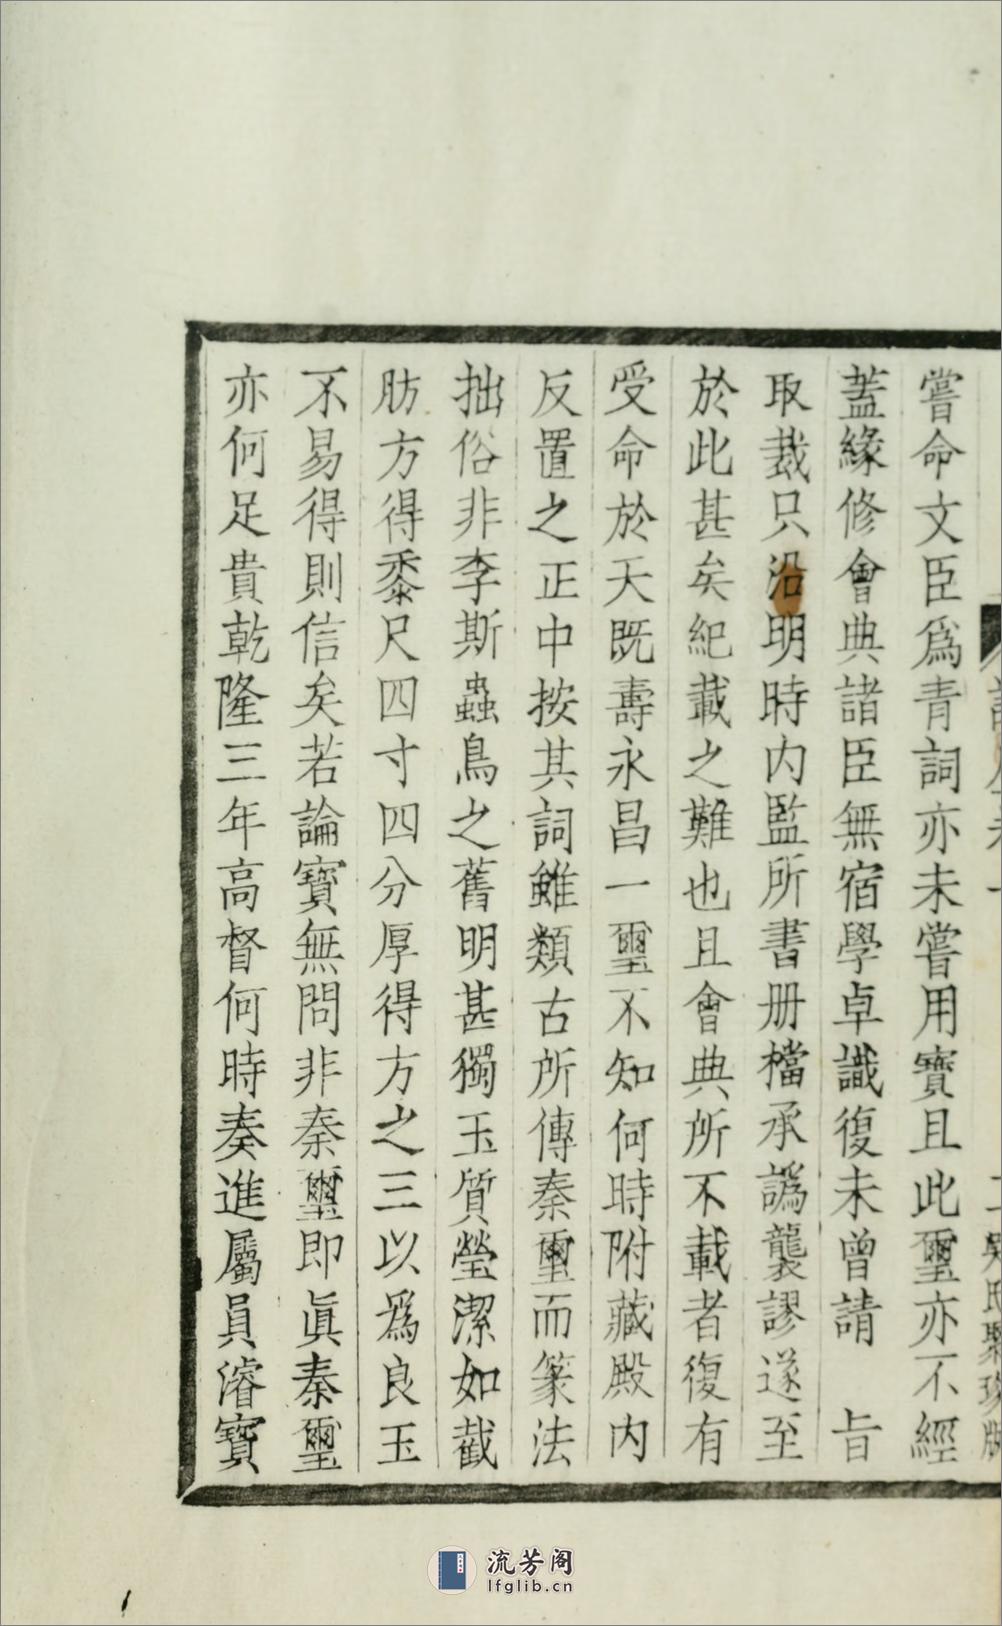 嘗命文臣爲青詞亦未嘗用寶且此璽亦不經
蓋緣修會典諸臣無宿學卓識復未曾請 旨
取裁只沿明時内監所書册檔承譌襲謬遂至
於此甚矣紀載之難也且會典所不載者復有
受命於天既壽永昌一璽不知何時附藏殿内
反置之正中按其詞雖類古所傳秦璽而篆法
拙俗非李斯蟲鳥之舊明甚獨玉質瑩潔如截
肪方得黍尺四寸四分厚得方之三以爲良玉
不易得則信矣若論寶無問非秦璽即眞秦璽
亦何足貴乾隆三年高督何時奏進屬員濬寶
流芳阁
lfglib.cn